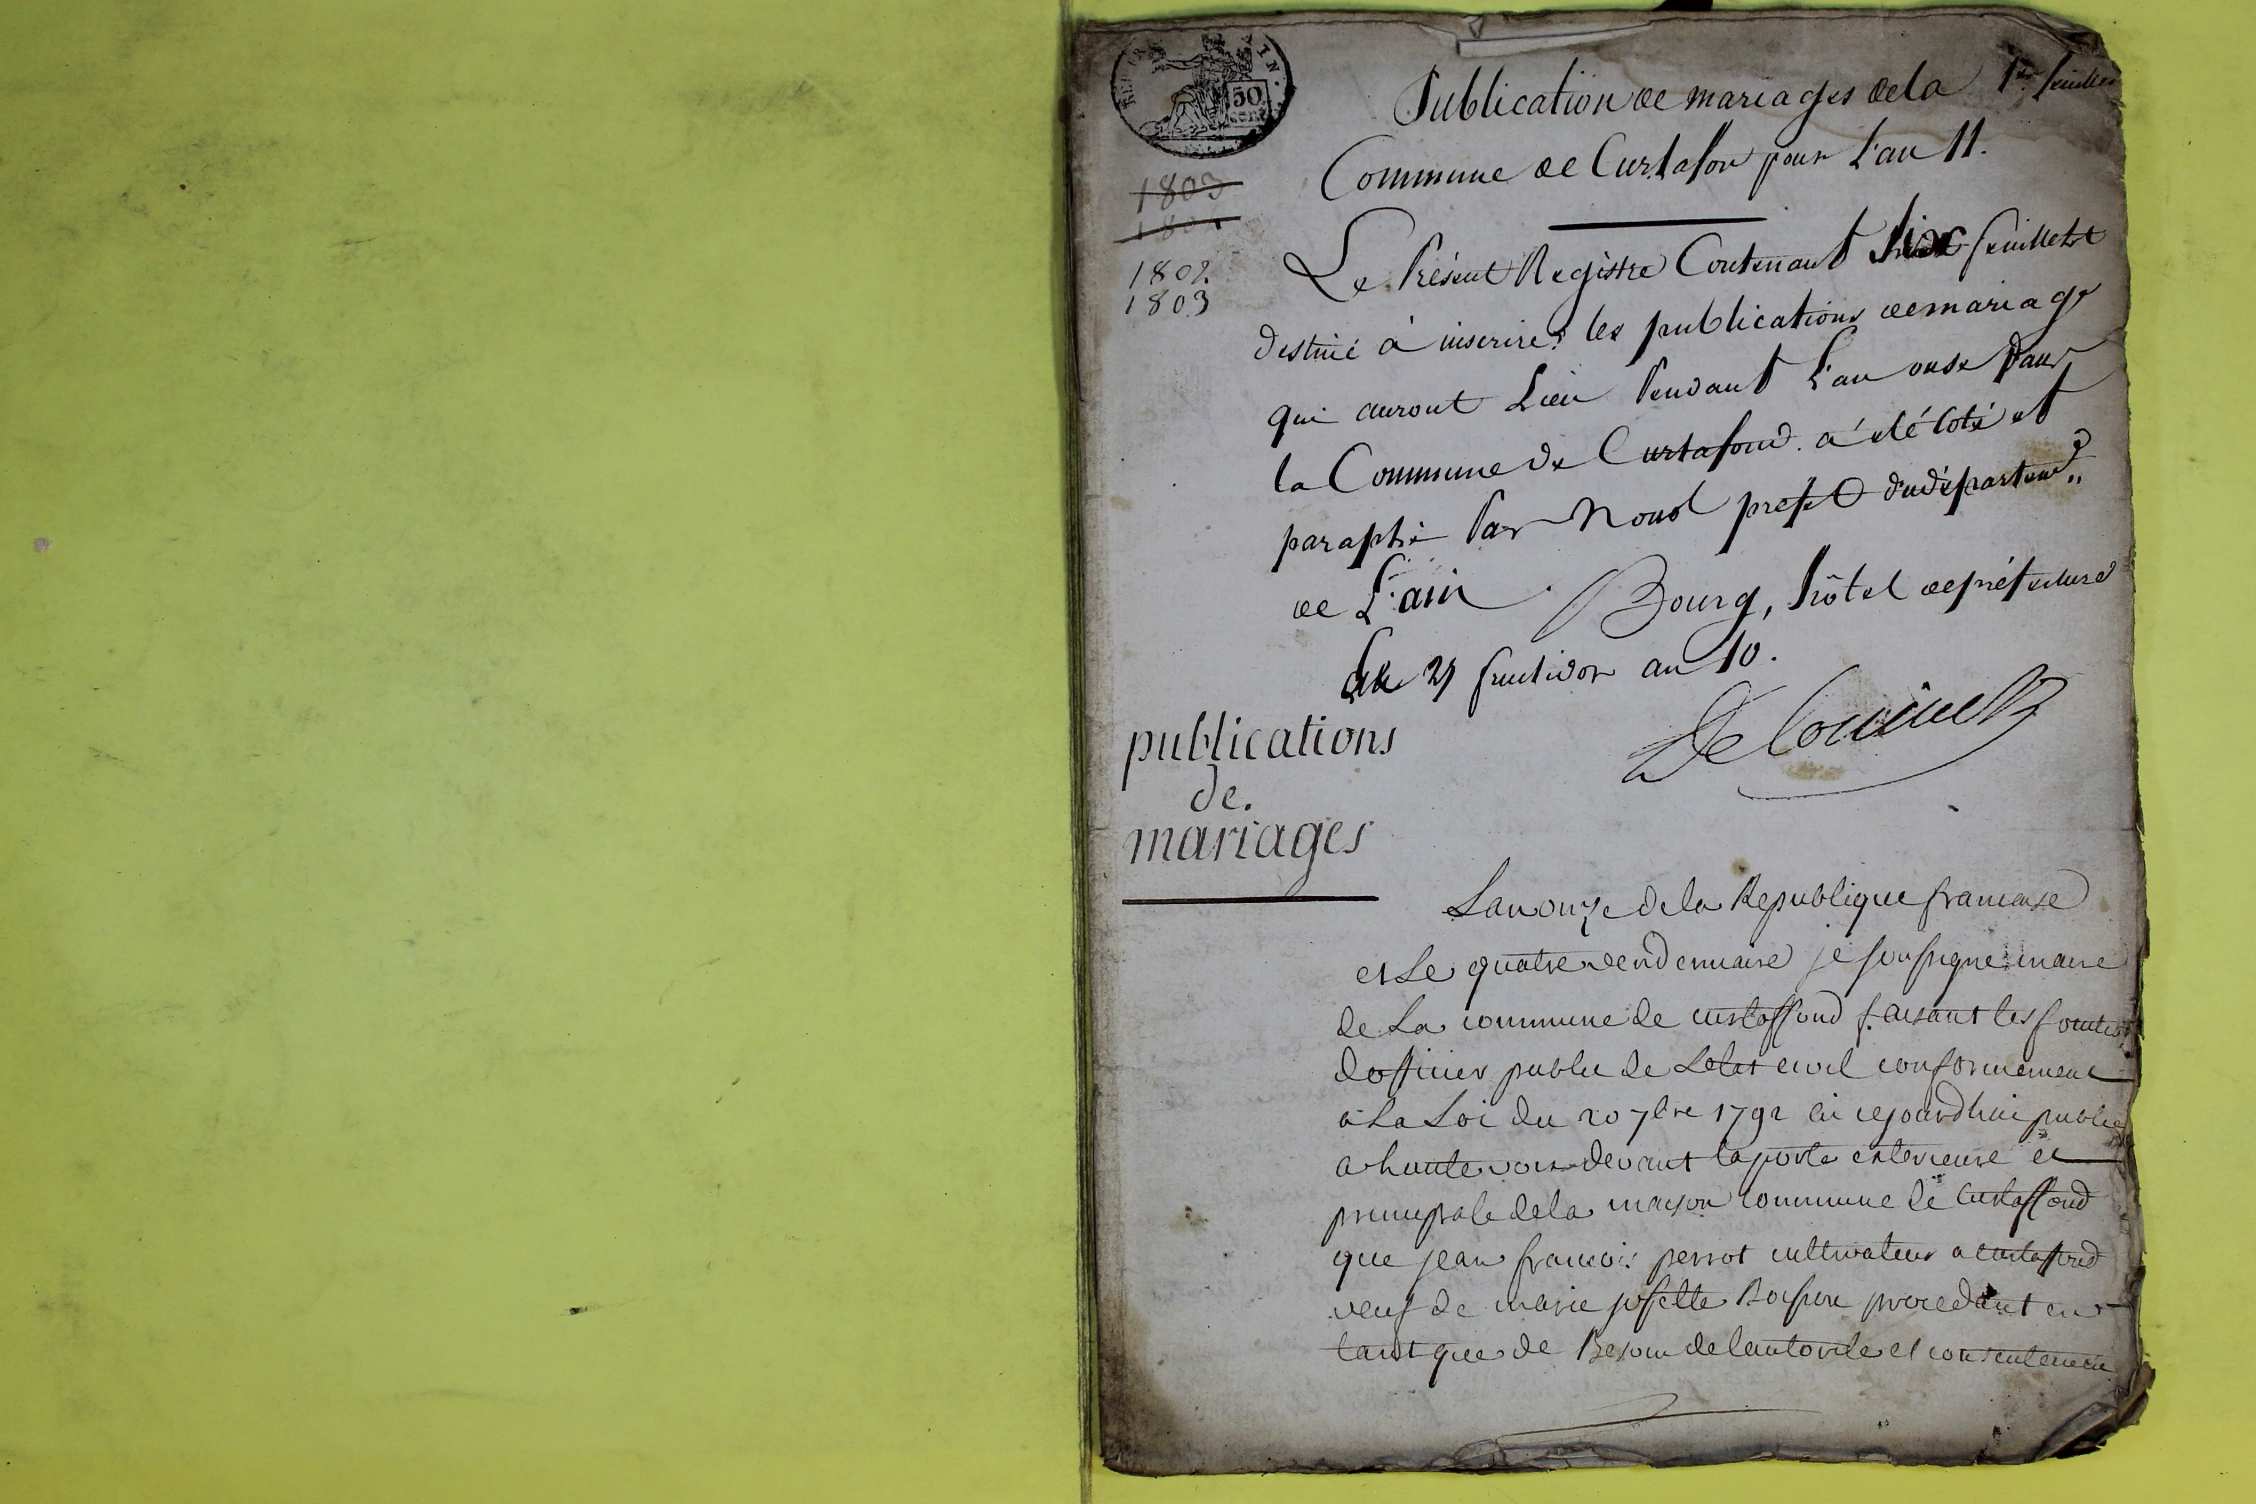 Publication de mariages de la 1er feuillet
Commune de Curtafon pour L'an 11.
50
cent
1803
1802
1803
Le Présent Registre Contenant six feuillets
destiné à inscrire les publications de mariage
qui auront Lieu Pendant L'an onze dans
la Commune de Curtafond. a été coté et
paraphé Par Nous prefet du départemt
de L'ain. Bourg, hôtel de préfecture
Le 27 fructidor an 10.
publications
de.
mariages
Lan onze de la Republique francaise
et Le quatre vendemiaire je sousigné maire
de La commune de curtaffond faisant les fonctions
dofficier public de Letat civil conformement
a La Loi du 20 7bre 1792 ai cejourdhui publié
a haute voix devant la porte exterieure et
principale de la maison commune de Curtaffond
que jean francois perrot cultivateur a curtaffond
veuf de marie josette procedant en
tant que de Besoin de lautorite et consentement